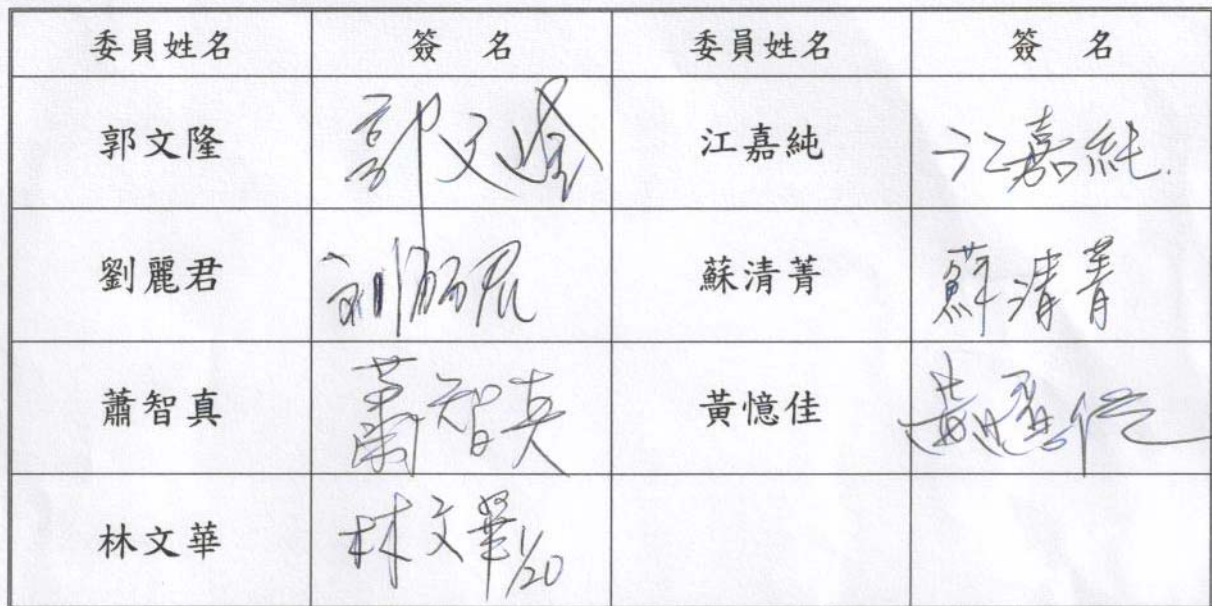 委員姓名 簽 名 委員姓名 簽 名
郭文隆 郭文隆 江嘉純 江嘉純
劉麗君 劉麗君 蘇清菁 蘇清菁
蕭智真 蕭智真 黃憶佳 黃憶佳
林文華 林文華 1/20